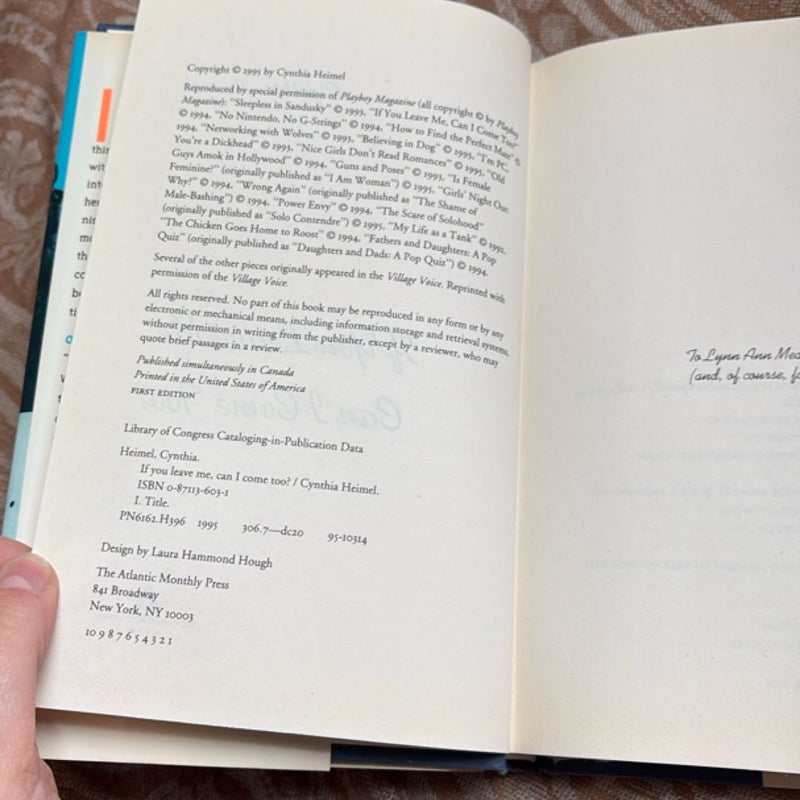 Copyright © 1995 by Cynthia Heimel
Reproduced by special permission of Playboy Magazine (all copyright © by Playboy
Magazine): "Sleepless in Sandusky" © 1993, "If You Leave Me, Can I Come Too?"
© 1994, "No Nintendo, No G-Strings" © 1994, "How to Find the Perfect Mate" ©
1994, "Networking with Wolves" © 1993, "Believing in Dog" © 1993, "I'm PC,
You're a Dickhead" © 1993, "Nice Girls Don't Read Romances" © 1995, "Old
Guys Amok in Hollywood" © 1994, "Guns and Poses" © 1993, "Is Female
Feminine?" (originally published as "I Am Woman") © 1995, "Girls' Night Out:
Why?" © 1994, "Wrong Again" (originally published as "The Shame of
Male-Bashing") © 1994, "Power Envy" © 1994, "The Scare of Solohood"
(originally published as "Solo Contendre") © 1995, "My Life as a Tank" © 1992,
"The Chicken Goes Home to Roost" © 1994, "Fathers and Daughters: A Pop
Quiz" (originally published as "Daughters and Dads: A Pop Quiz") © 1994.
Several of the other pieces originally appeared in the Village Voice. Reprinted with
permission of the Village Voice.
All rights reserved. No part of this book may be reproduced in any form or by any
electronic or mechanical means, including information storage and retrieval systems,
without permission in writing from the publisher, except by a reviewer, who may
quote brief passages in a review.
Published simultaneously in Canada
Printed in the United States of America
FIRST EDITION
Library of Congress Cataloging-in-Publication Data
Heimel, Cynthia.
If you leave me, can I come too? / Cynthia Heimel.
ISBN 0-87113-603-1
I. Title.
PN6162.H396 1995 306.7—dc20 95-10314
Design by Laura Hammond Hough
The Atlantic Monthly Press
841 Broadway
New York, NY 10003
10 9 8 7 6 5 4 3 2 1
To Lynn Ann Mea
(and, of course, f